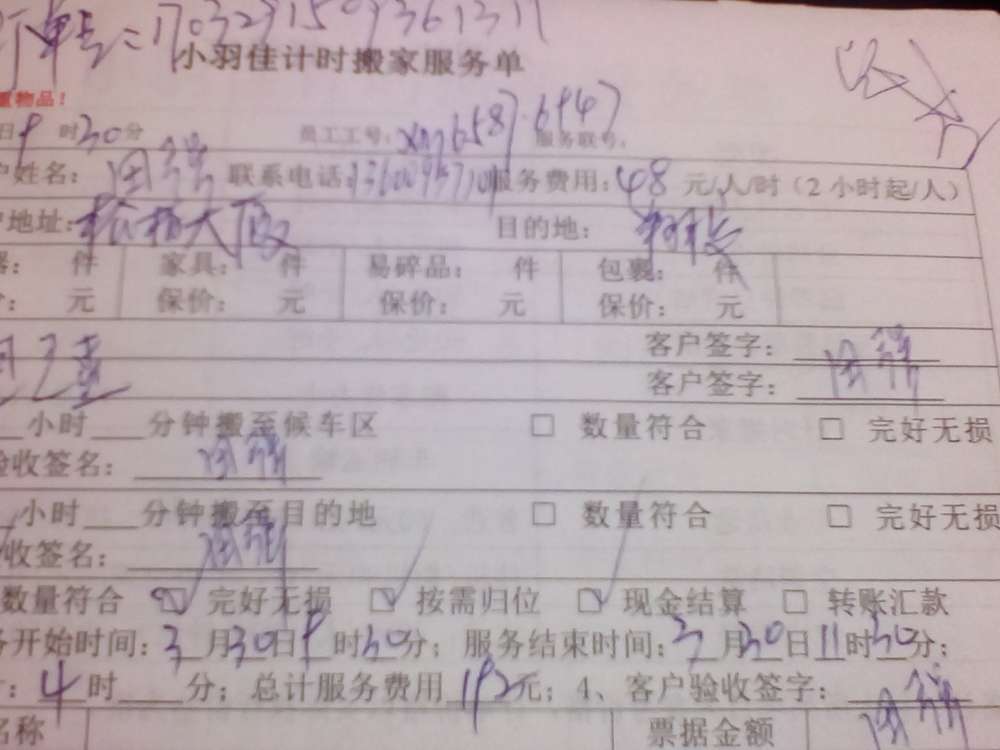 订单号=1703291509361311
小羽佳计时搬家服务单
重物品！
日9时30分 员工工号： 服务联号：
户姓名： 联系电话： 服务费用：48元/人/时（2小时起/人）
地址： 大厦 目的地：
件 家具： 件 易碎品： 件 包裹： 件
元 保价： 元 保价： 元 保价： 元
客户签字：
客户签字：
小时 分钟搬至候车区 □ 数量符合 □ 完好无损
验收签名：
小时 分钟搬至目的地 □ 数量符合 □ 完好无损
收签名：
数量符合 ☑ 完好无损 ☑ 按需归位 ☑ 现金结算 □ 转账汇款
务开始时间：3月30日9时30分；服务结束时间：3月30日11时30分；
：4时 分；总计服务费用192元；4、客户验收签字：
名称 票据金额